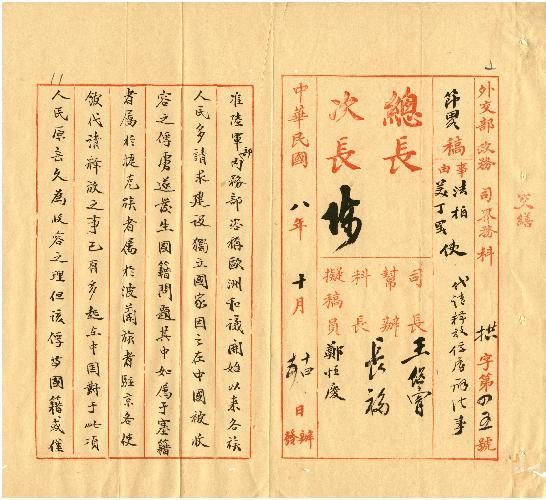 交繕
外交部政務司界務科 字第四五號
節畧稿
事由
法柏
美丁 使
代請釋放俘虜 事
總長
次長
司長 王
幫辦
科長 長福
擬稿員 鄭恒慶
中華民國八年十月十四日
辦
發
准陸軍內務部咨稱歐洲和議開始以來各族
人民多請求建設獨立國家因之在中國被收
容之俘虜遂發生國籍問題其中如屬于塞籍
者屬於捷克族者屬於波蘭族者駐京各使
館代請釋放之事已有多起在中國對于此項
人民原無久為收容之理但該俘等國籍或僅